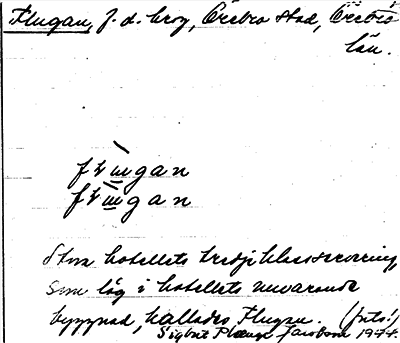 Flugan, f. d. krog, Örebro stad, Örebro
län.
flugan
flugan
Stora hotellets tredje klass servering,
som låg i hotellets nuvarande
byggnad, kallades Flugan. (puts!)
Sigbrit Plaenge Jacobson 1977.